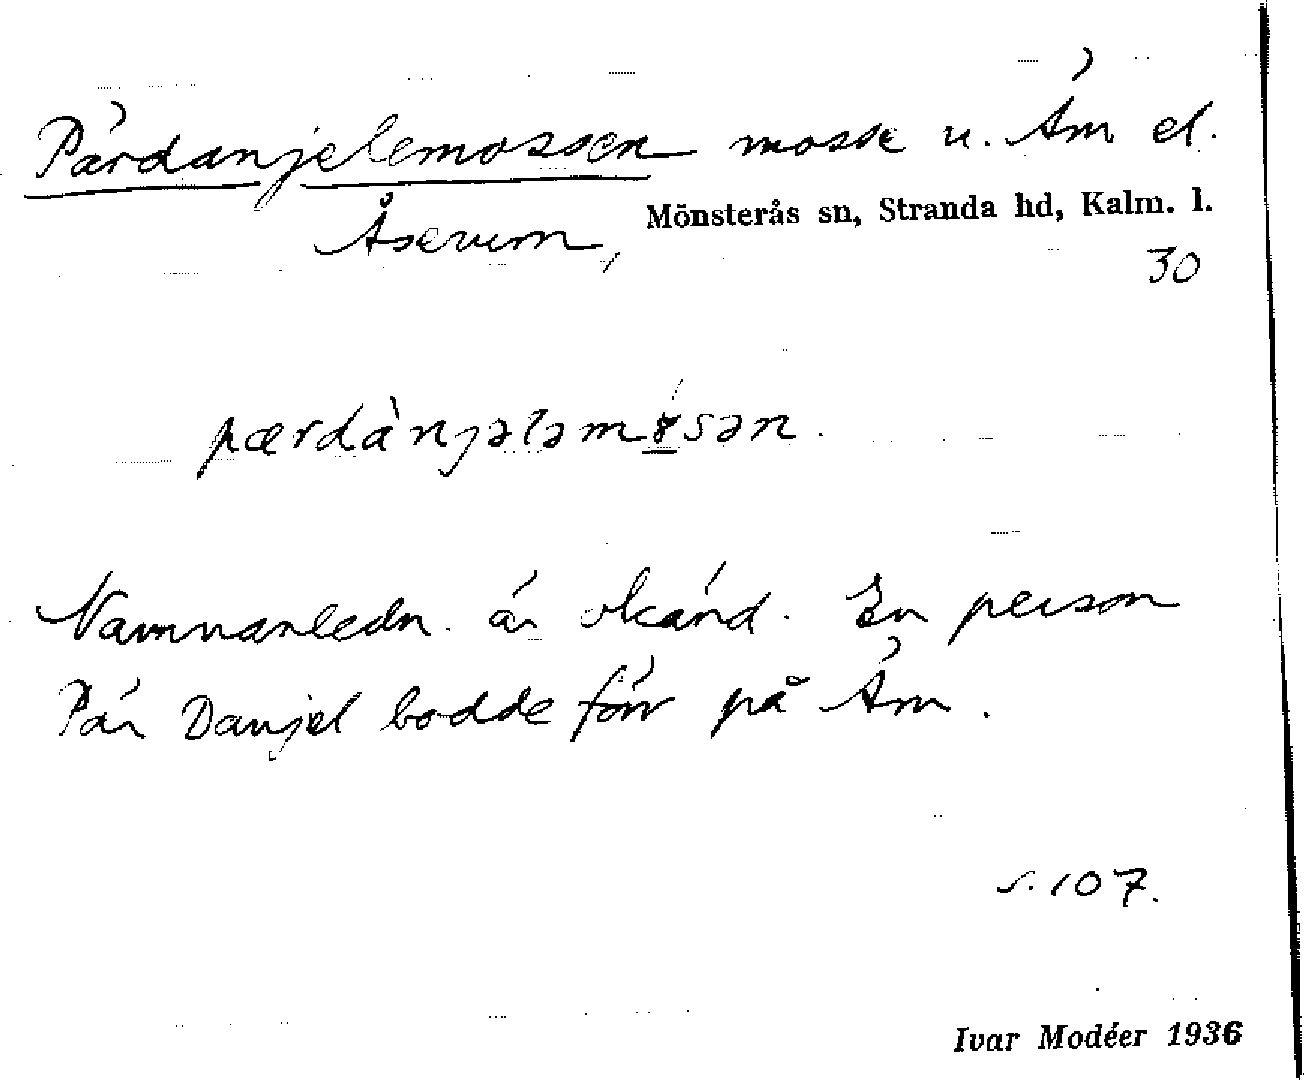 Pärdanjelemossen mosse u. Äm el.
Åserum, Mönsterås sn, Stranda hd, Kalm. l.
30
pærdànjələmɤsən.
Namnanledn. är okänd. En person
Pär Danjel bodde förr på Äm.
s. 107.
Ivar Modéer 1936